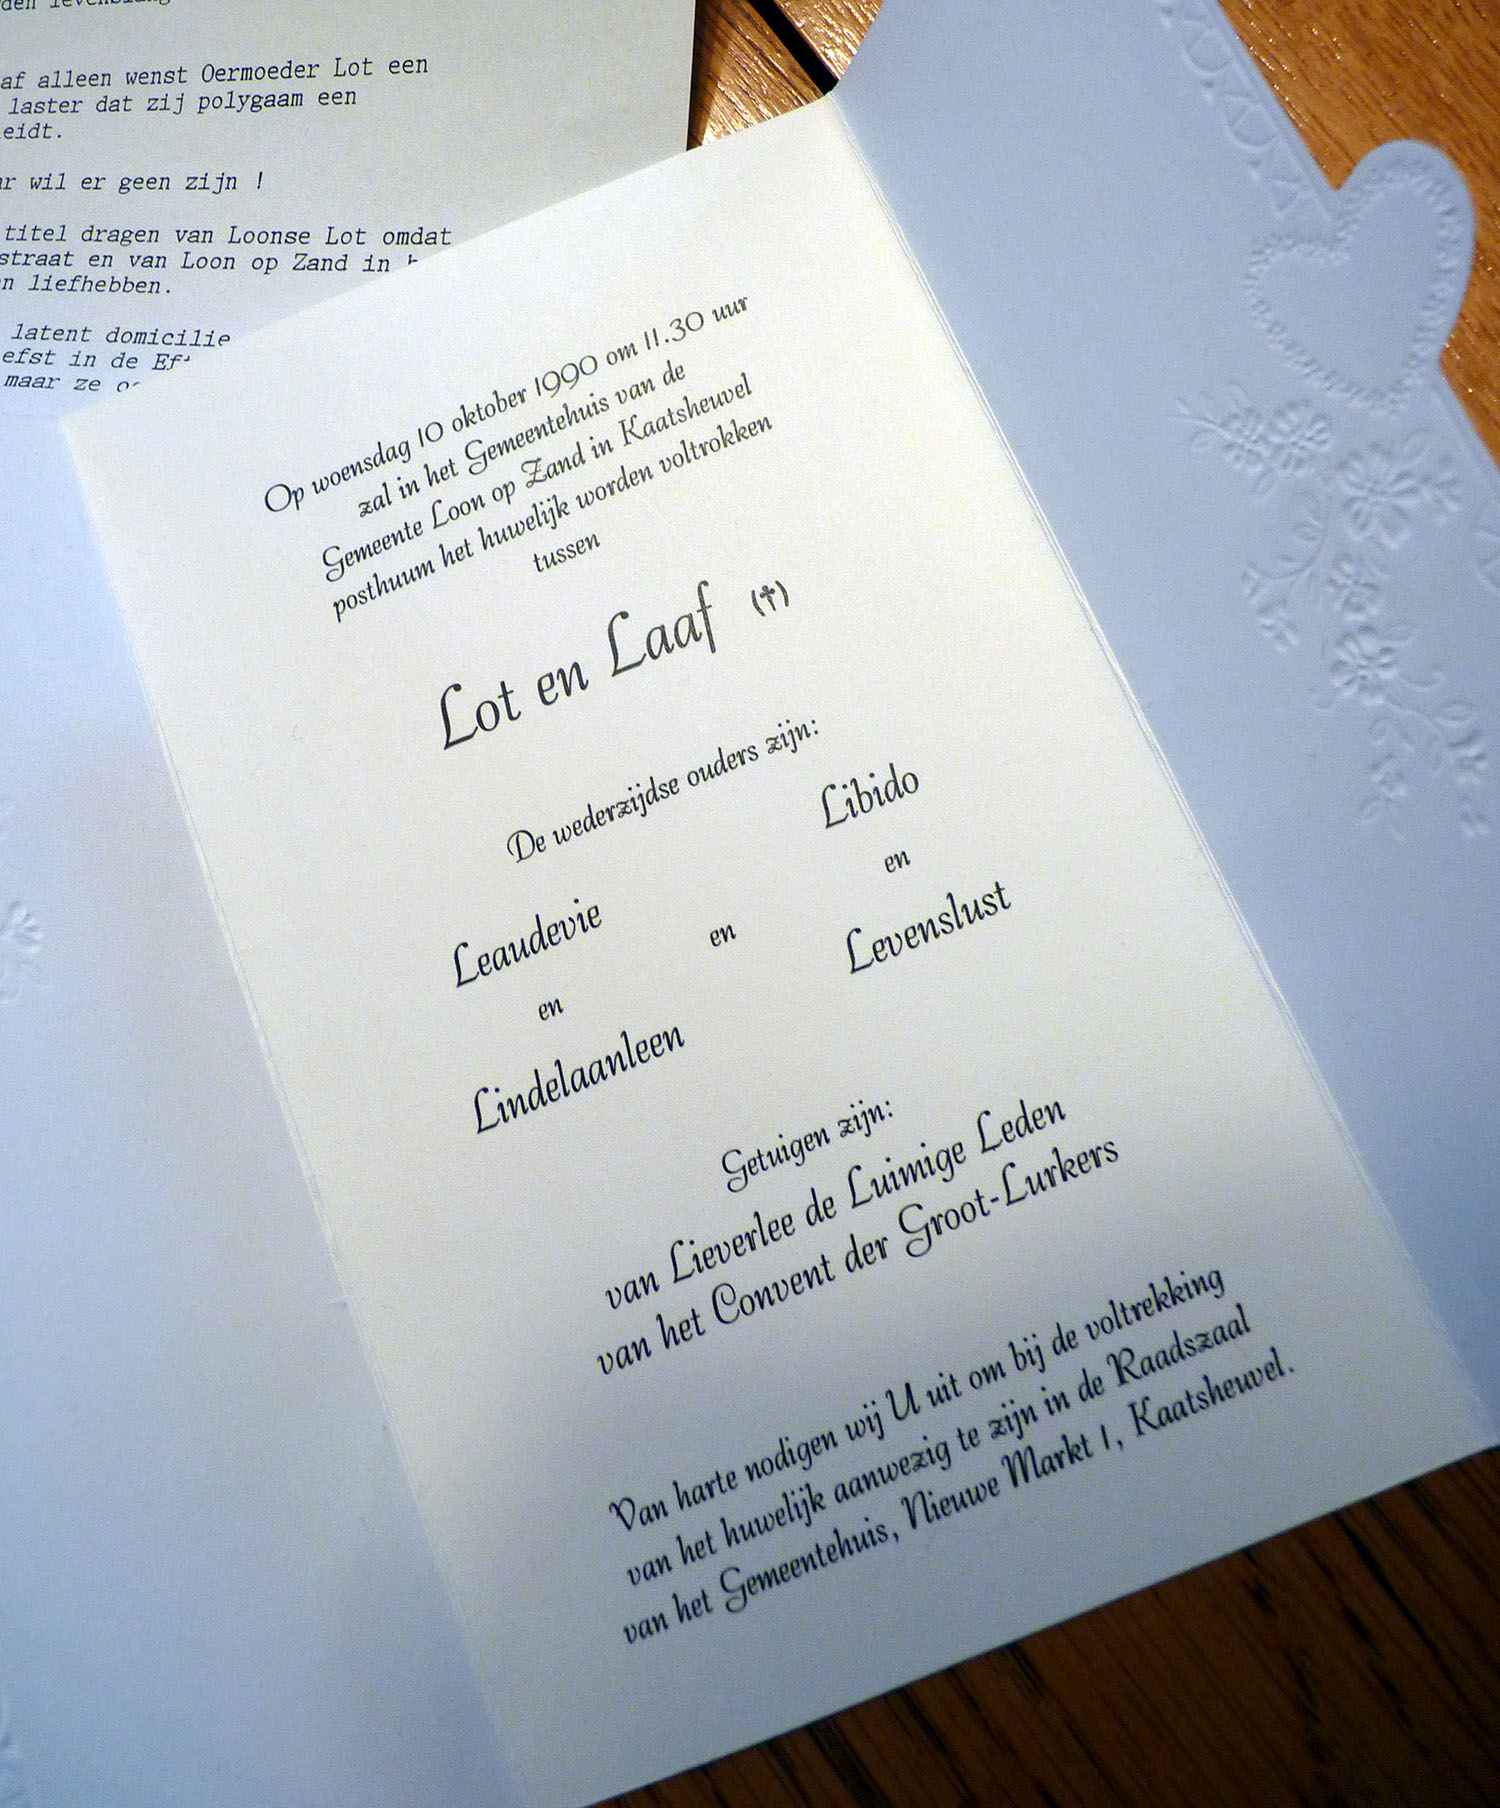 den levenslang
af alleen wenst Oermoeder Lot een
laster dat zij polygaam een
eidt.
ar wil er geen zijn !
titel dragen van Loonse Lot omdat
straat en van Loon op Zand in
n liefhebben.
latent domicilie
efst in de
maar ze
Op woensdag 10 oktober 1990 om 11.30 uur
zal in het Gemeentehuis van de
Gemeente Loon op Zand in Kaatsheuvel
posthuum het huwelijk worden voltrokken
tussen
Lot en Laaf (✝)
De wederzijdse ouders zijn:
Leaudevie
en
Lindelaanleen
en
Libido
en
Levenslust
Getuigen zijn:
van Lieverlee de Luimige Leden
van het Convent der Groot-Lurkers
Van harte nodigen wij U uit om bij de voltrekking
van het huwelijk aanwezig te zijn in de Raadszaal
van het Gemeentehuis, Nieuwe Markt 1, Kaatsheuvel.